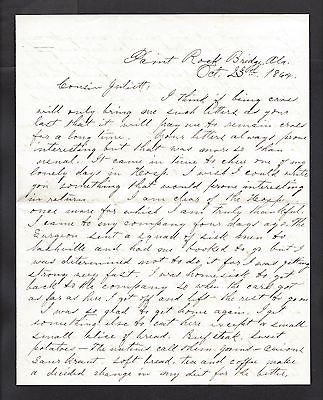 Paint Rock Bridge, Ala.
Oct. 23rd, 1864.
Cousin Juliett:
I think if being cross
will only bring me such letters as your
last that it will pay me to remain cross
for a long time. Your letters always prove
interesting but that was more so than
usual. It came in time to cheer one of my
lonely days in Hosp. I wish I could write
you something that would prove interesting
in return. I am clear of the Hosp.
once more for which I am truly thankful.
I came to my company four days ago. The
Surgeon sent a squad of sick men to
Nashville and had me booked to go but I
was determined not to do it for I was getting
strong very fast. I was homesick to get
back to the company so when the cars got
as far as her I got off and left the rest to go on
I was so glad to get home again. I get
something else to eat here except a small
small slice of bread. Beef steak, sweet
potatoes – the natives call them yams – onions
Saur Kraut, soft bread, tea and coffee make
a decided change in my diet for the better.